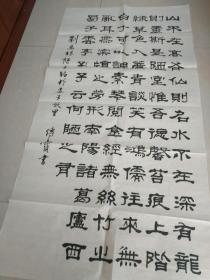 山不在高有仙則名水不在深有龍
則靈斯是陋室惟吾德馨苔痕上階
綠草色入簾青談笑有鴻儒往來無
白丁可以調素琴閱金經無絲竹之
亂耳無案牘之勞形南陽諸葛廬西
蜀子雲亭孔子云何陋之有
劉禹錫陋室銘
書